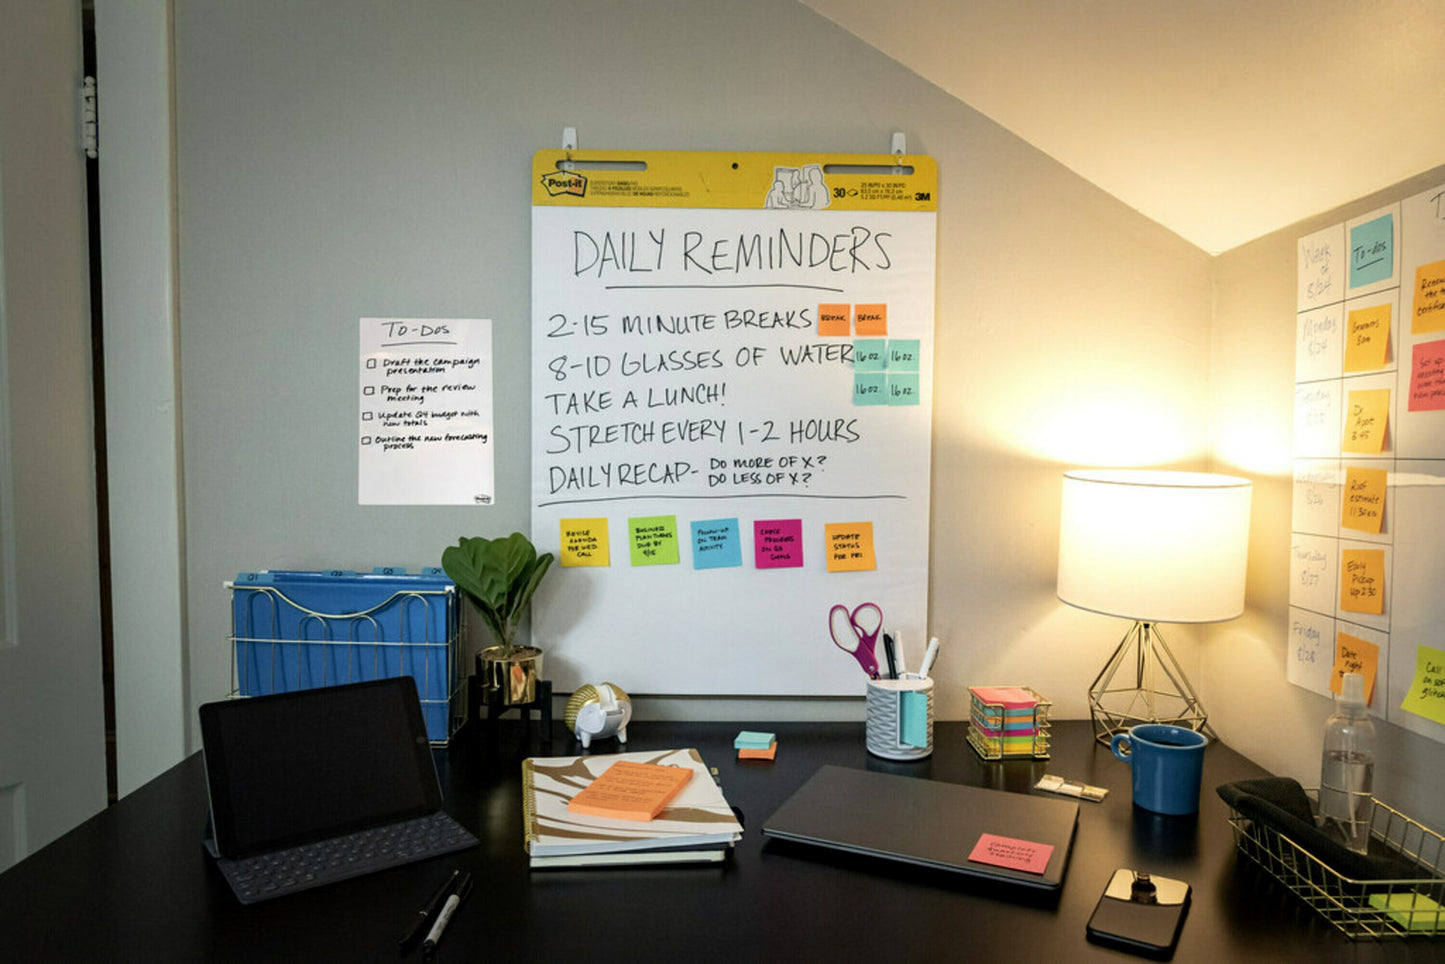 Post-it
30
25 IN/PO x 30 IN/PO
3M
DAILY REMINDERS
2-15 MINUTE BREAKS
BREAK
BREAK
8-10 GLASSES OF WATER
16 oz.
16 oz.
16 oz.
16 oz.
TAKE A LUNCH!
STRETCH EVERY 1-2 HOURS
DAILY RECAP- DO MORE OF X?
DO LESS OF X?
REVISE
AGENDA
FOR WED.
CALL
BUSINESS
PLAN
DUE BY
9/15
FOLLOW-UP
ON TEAM
ACTIVITY
CHECK
PROGRESS
ON Q3
GOALS
UPDATE
STATUS
FOR FRI.
TO-DOS
Draft the campaign
presentation
Prep for the review
meeting
Update Q4 budget with
new totals
Outline the new forecasting
process
Post-it
Q1
Q2
Q3
Q4
Complete
training
Week
of
8/24
To-dos
Monday
8/24
Tuesday
Dr
Appt
3:45
8/26
Roof
estimate
11:30am
Thursday
8/27
Early
Pickup
Up 2:30
Friday
8/28
Date
night
Set up
Call
on